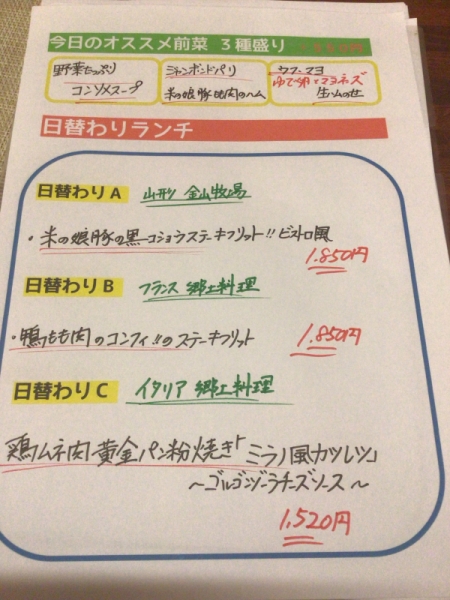 今日のオススメ前菜 3種盛り
野菜たっぷり
コンソメスープ
ジャンボンドパリ
米の娘豚もも肉のハム
ウフ・マヨ
ゆで卵とマヨネーズ
生ハムのせ
日替わりランチ
日替わりA 山形 金山牧場
・米の娘豚の黒コショウステーキフリット!!ビストロ風
1.850円
日替わりB フランス 郷土料理
・鴨もも肉のコンフィ!!のステーキフリット
1.850円
日替わりC イタリア 郷土料理
鶏ムネ肉黄金パン粉焼き「ミラノ風カツレツ」
～ゴルゴンゾーラチーズソース～
1.520円